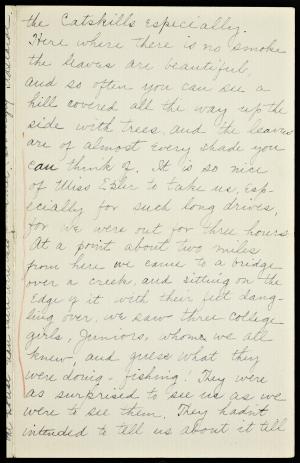 the Catskills especially.
Here where there is no smoke
the leaves are beautiful,
and so often you can see a
hill covered all the way up the
side with trees, and the leaves
are of almost every shade you
can think of. It is so nice
of Miss Epler to take us, esp-
ecially for such long drives,
for we were out for three hours
At a point about two miles
from here we came to a bridge
over a creek, and sitting on the
Edge of it with their feet dang-
ling over, we saw three college
girls, Juniors, whom we all
knew, and guess what they
were doing - fishing! They were
as surprised to see us as we
were to see them. They hadn't
intended to tell us about it till